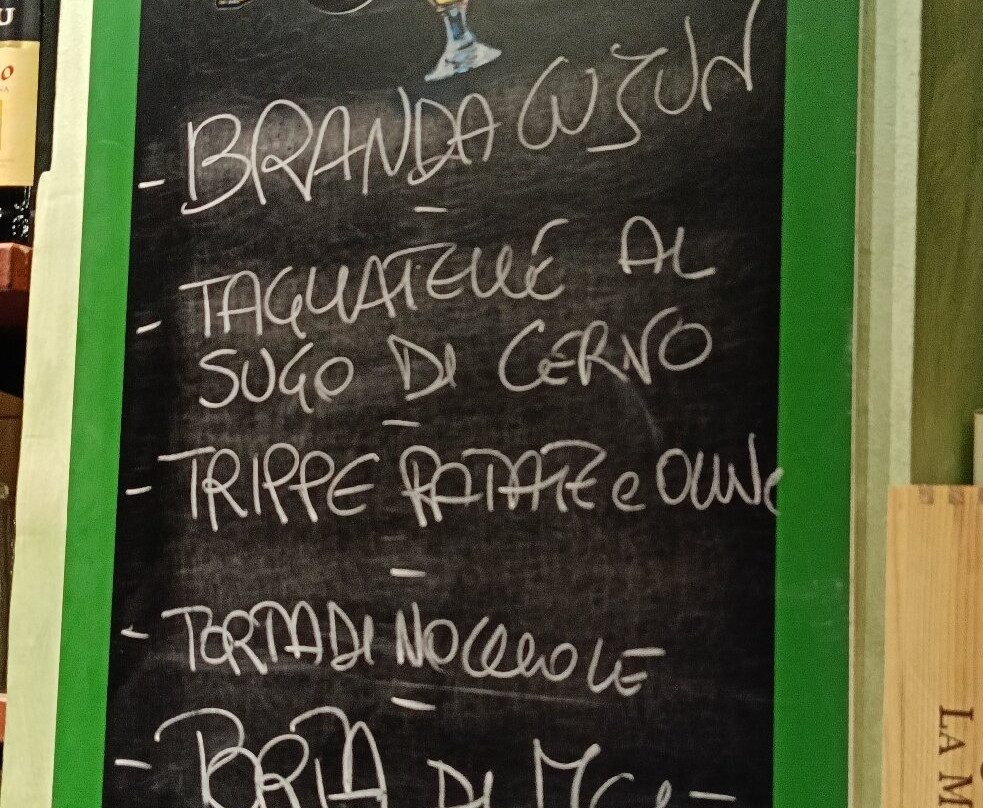 - BRANDA CUJUN
- TAGLIATELLE AL
SUGO DI CERVO
- TRIPPE PATATE e OLIVE
- TORTA DI NOCCIOLE
- TORTA DI
LA M